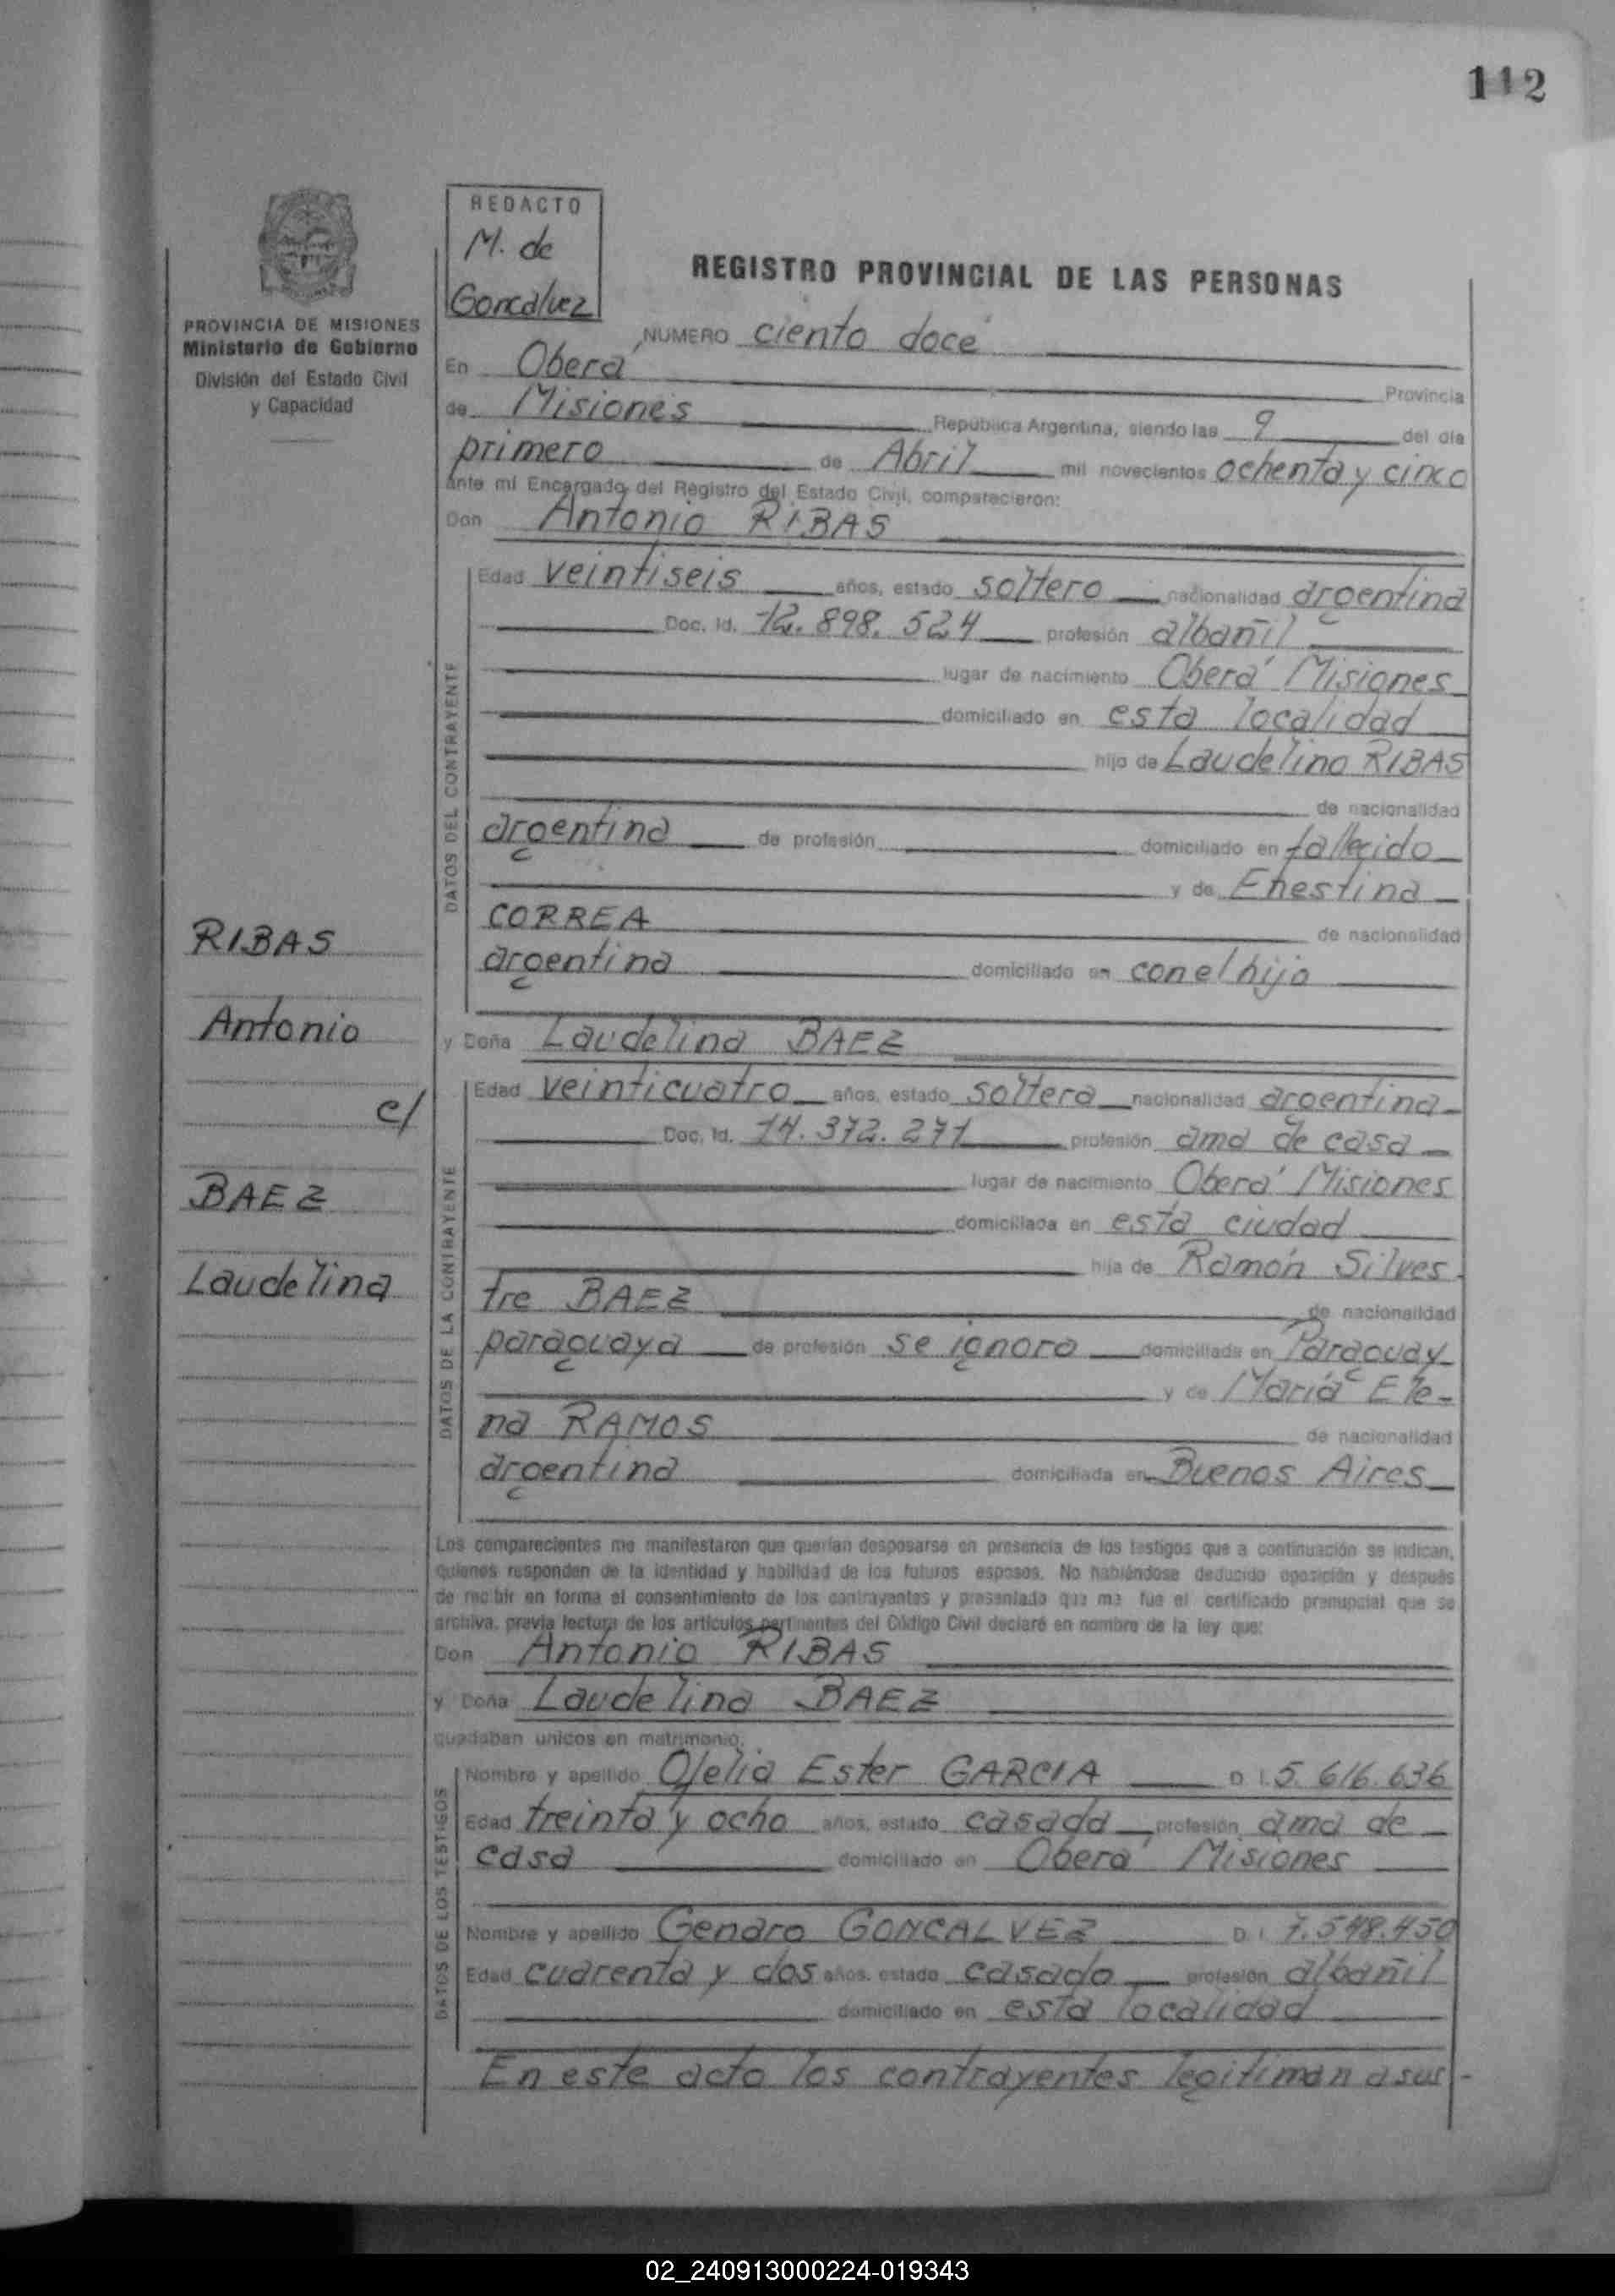 112
REDACTO
M. de
Goncalvez
PROVINCIA DE MISIONES
Ministerio de Gobierno
División del Estado Civil
y Capacidad
REGISTRO PROVINCIAL DE LAS PERSONAS
NUMERO ciento doce
En Oberá Provincia
de Misiones República Argentina, siendo las 9 del día
primero de Abril mil novecientos ochenta y cinco
ante mí Encargado del Registro del Estado Civil, comparecieron:
Don Antonio RIBAS
DATOS DEL CONTRAYENTE
Edad veintiseis años, estado soltero nacionalidad argentina
Doc. Id. 12.898.524 profesión albañil
lugar de nacimiento Oberá Misiones
domiciliado en esta localidad
hijo de Laudelino RIBAS
de nacionalidad
argentina de profesión domiciliado en fallecido
y de Ehestina
CORREA de nacionalidad
argentina domiciliado en con el hijo
RIBAS
Antonio
c/
BAEZ
Laudelina
y Doña Laudelina BAEZ
DATOS DE LA CONTRAYENTE
Edad veinticuatro años, estado soltera nacionalidad argentina
Doc. Id. 14.372.271 profesión ama de casa
lugar de nacimiento Oberá Misiones
domiciliada en esta ciudad
hija de Ramón Silves
tre BAEZ de nacionalidad
paraguaya de profesión se ignora domiciliada en Paraguay
y de María Ele-
na RAMOS de nacionalidad
argentina domiciliada en Buenos Aires
Los comparecientes me manifestaron que querían desposarse en presencia de los testigos que a continuación se indican,
quienes responden de la identidad y habilidad de los futuros esposos. No habiéndose deducido oposición y después
de recibir en forma el consentimiento de los contrayentes y presentado que me fue el certificado prenupcial que se
archiva, previa lectura de los artículos pertinentes del Código Civil declaré en nombre de la ley que:
Don Antonio RIBAS
y Doña Laudelina BAEZ
quedaban unidos en matrimonio.
DATOS DE LOS TESTIGOS
Nombre y apellido Ofelia Ester GARCIA D.I. 5.616.636
Edad treinta y ocho años, estado casada profesión ama de
casa domiciliado en Oberá Misiones
Nombre y apellido Genaro GONCALVEZ D.I. 7.548.450
Edad cuarenta y dos años, estado casado profesión albañil
domiciliado en esta localidad
En este acto los contrayentes legitiman a sus -
02_240913000224-019343